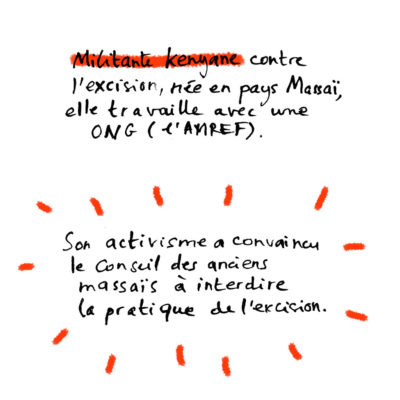 Militante kenyane contre
l'excision, née en pays Massaï,
elle travaille avec une
ONG (l'AMREF).
Son activisme a convaincu
le Conseil des anciens
massaïs à interdire
la pratique de l'excision.